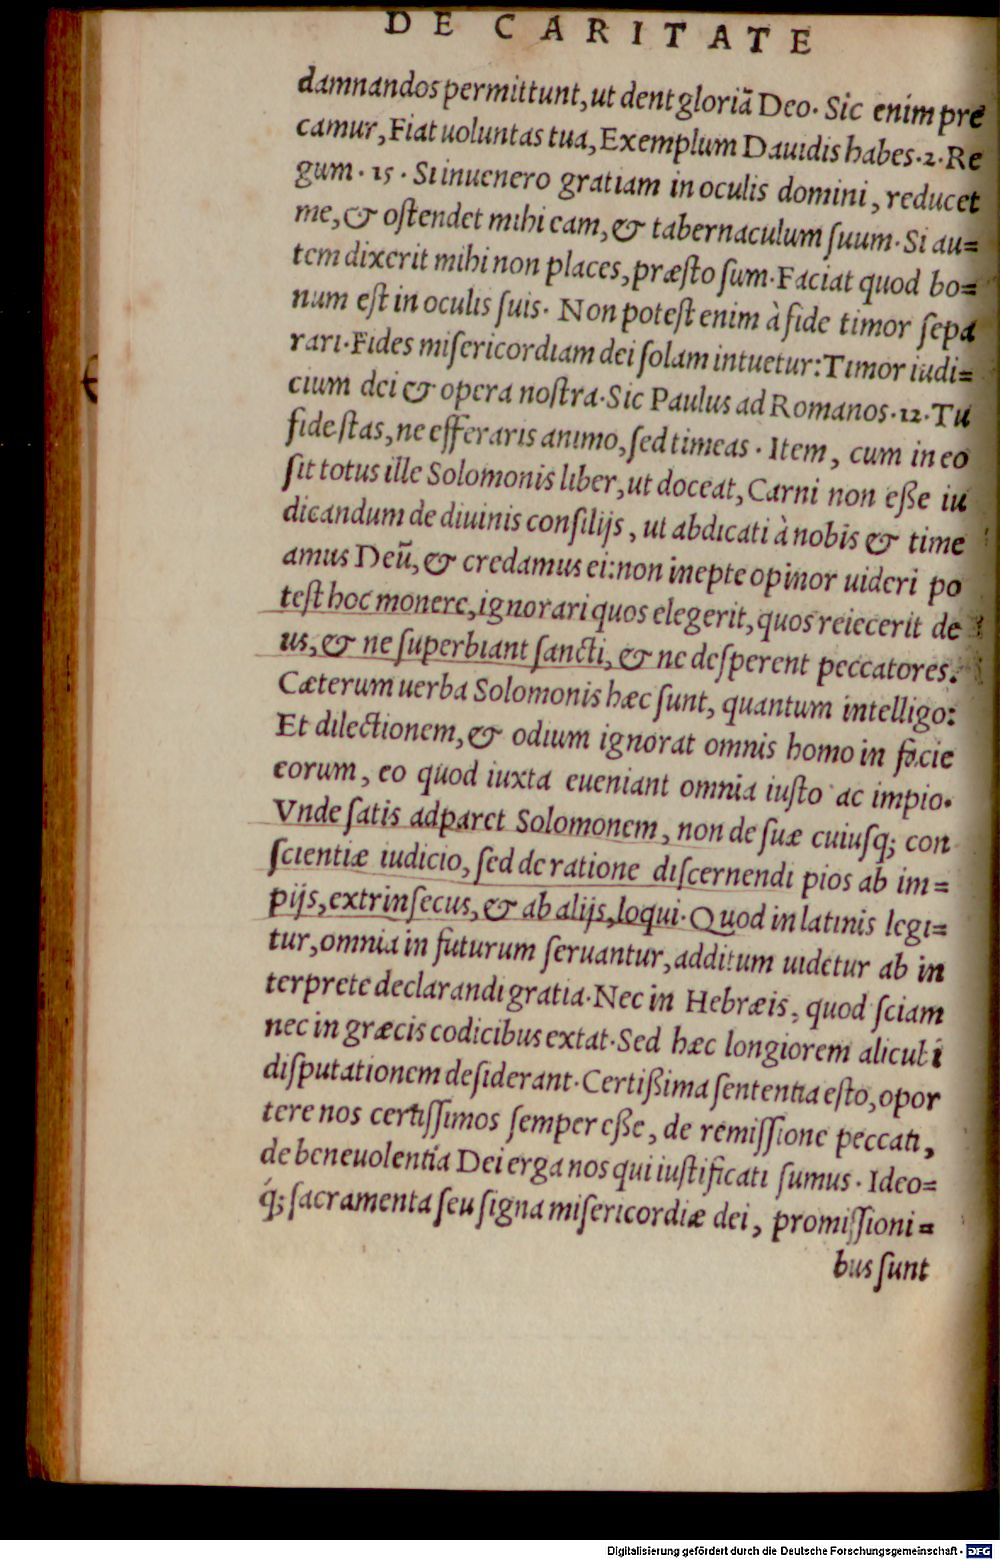 DE CARITATE
damnandos permittunt, ut dent gloriā Deo. Sic enim pre
camur, Fiat uoluntas tua, Exemplum Dauidis habes. 2. Re
gum. 15. Si inuenero gratiam in oculis domini, reducet
me, & oſtendet mihi eam, & tabernaculum ſuum. Si au=
tem dixerit mihi non places, præſto ſum. Faciat quod bo=
num eſt in oculis ſuis. Non poteſt enim à fide timor ſepa
rari. Fides miſericordiam dei ſolam intuetur: Timor iudi=
cium dei & opera noſtra. Sic Paulus ad Romanos. 12. Tu
fide ſtas, ne efferaris animo, ſed timeas. Item, cum in eo
ſit totus ille Solomonis liber, ut doceat, Carni non eße iu
dicandum de diuinis conſilijs, ut abdicati à nobis & time
amus Deū, & credamus ei: non inepte opinor uideri po
teſt hoc monere, ignorari quos elegerit, quos reiecerit de
us, & ne ſuperbiant ſancti, & ne deſperent peccatores.
Cæterum uerba Solomonis hæc ſunt, quantum intelligo:
Et dilectionem, & odium ignorat omnis homo in facie
eorum, eo quod iuxta eueniant omnia iuſto ac impio.
Vnde ſatis adparet Solomonem, non de ſuæ cuiuſq; con
ſcientiæ iudicio, ſed de ratione diſcernendi pios ab im=
pijs, extrinſecus, & ab alijs, loqui. Quod in latinis legi=
tur, omnia in futurum ſeruantur, additum uidetur ab in
terprete declarandi gratia. Nec in Hebræis, quod ſciam
nec in græcis codicibus extat. Sed hæc longiorem alicubi
diſputationem deſiderant. Certißima ſententia eſto, opor
tere nos certiſſimos ſemper eße, de remiſſione peccati,
de beneuolentia Dei erga nos qui iuſtificati ſumus. Ideo=
q́; ſacramenta ſeu ſigna miſericordiæ dei, promiſſioni=
bus ſunt
Digitalisierung gefördert durch die Deutsche Forschungsgemeinschaft - DFG